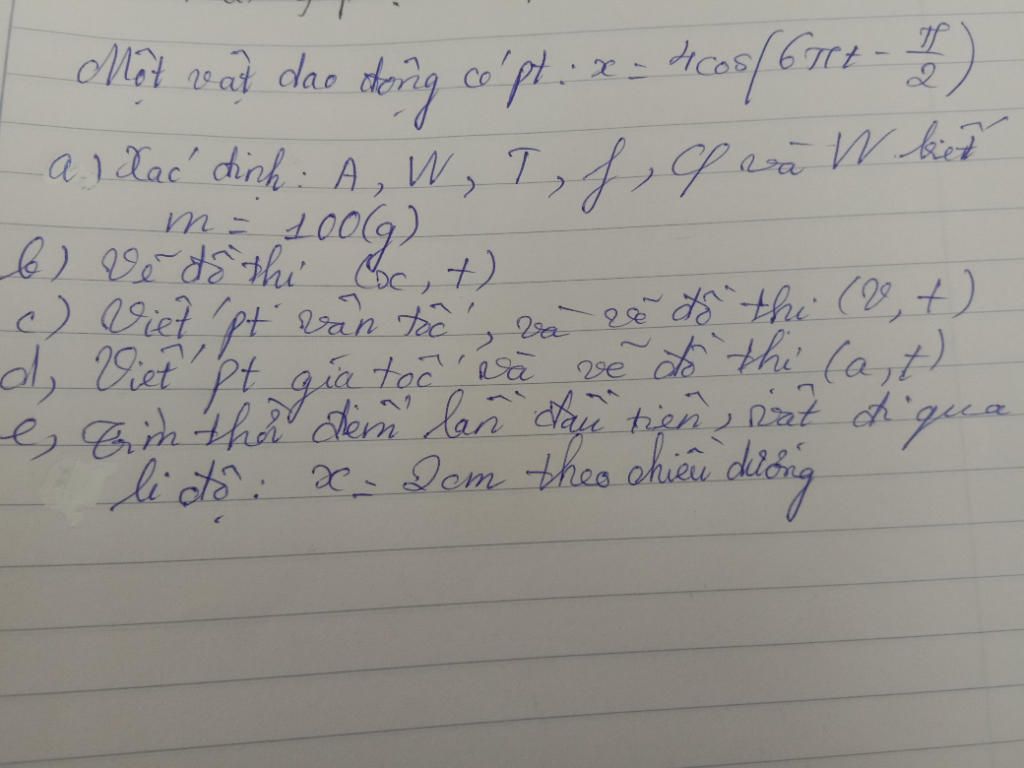 Một vật dao động có pt: x = 4cos(6πt - π/2)
a) Xác định: A, W, T, f, φ và W biết
m = 100(g)
b) Vẽ đồ thi (x, t)
c) Viết pt vần tốc, và vẽ đồ thi (v, t)
d, Viết pt gia tốc và vẽ đồ thi (a, t)
e, Tìm thời điểm lần đầu tiên, vật đi qua
li độ: x = 2cm theo chiều dương